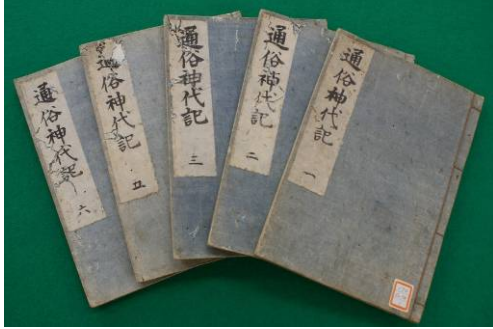 通俗神代記 一
通俗神代記 二
通俗神代記 三
通俗神代記 五
通俗神代記 六